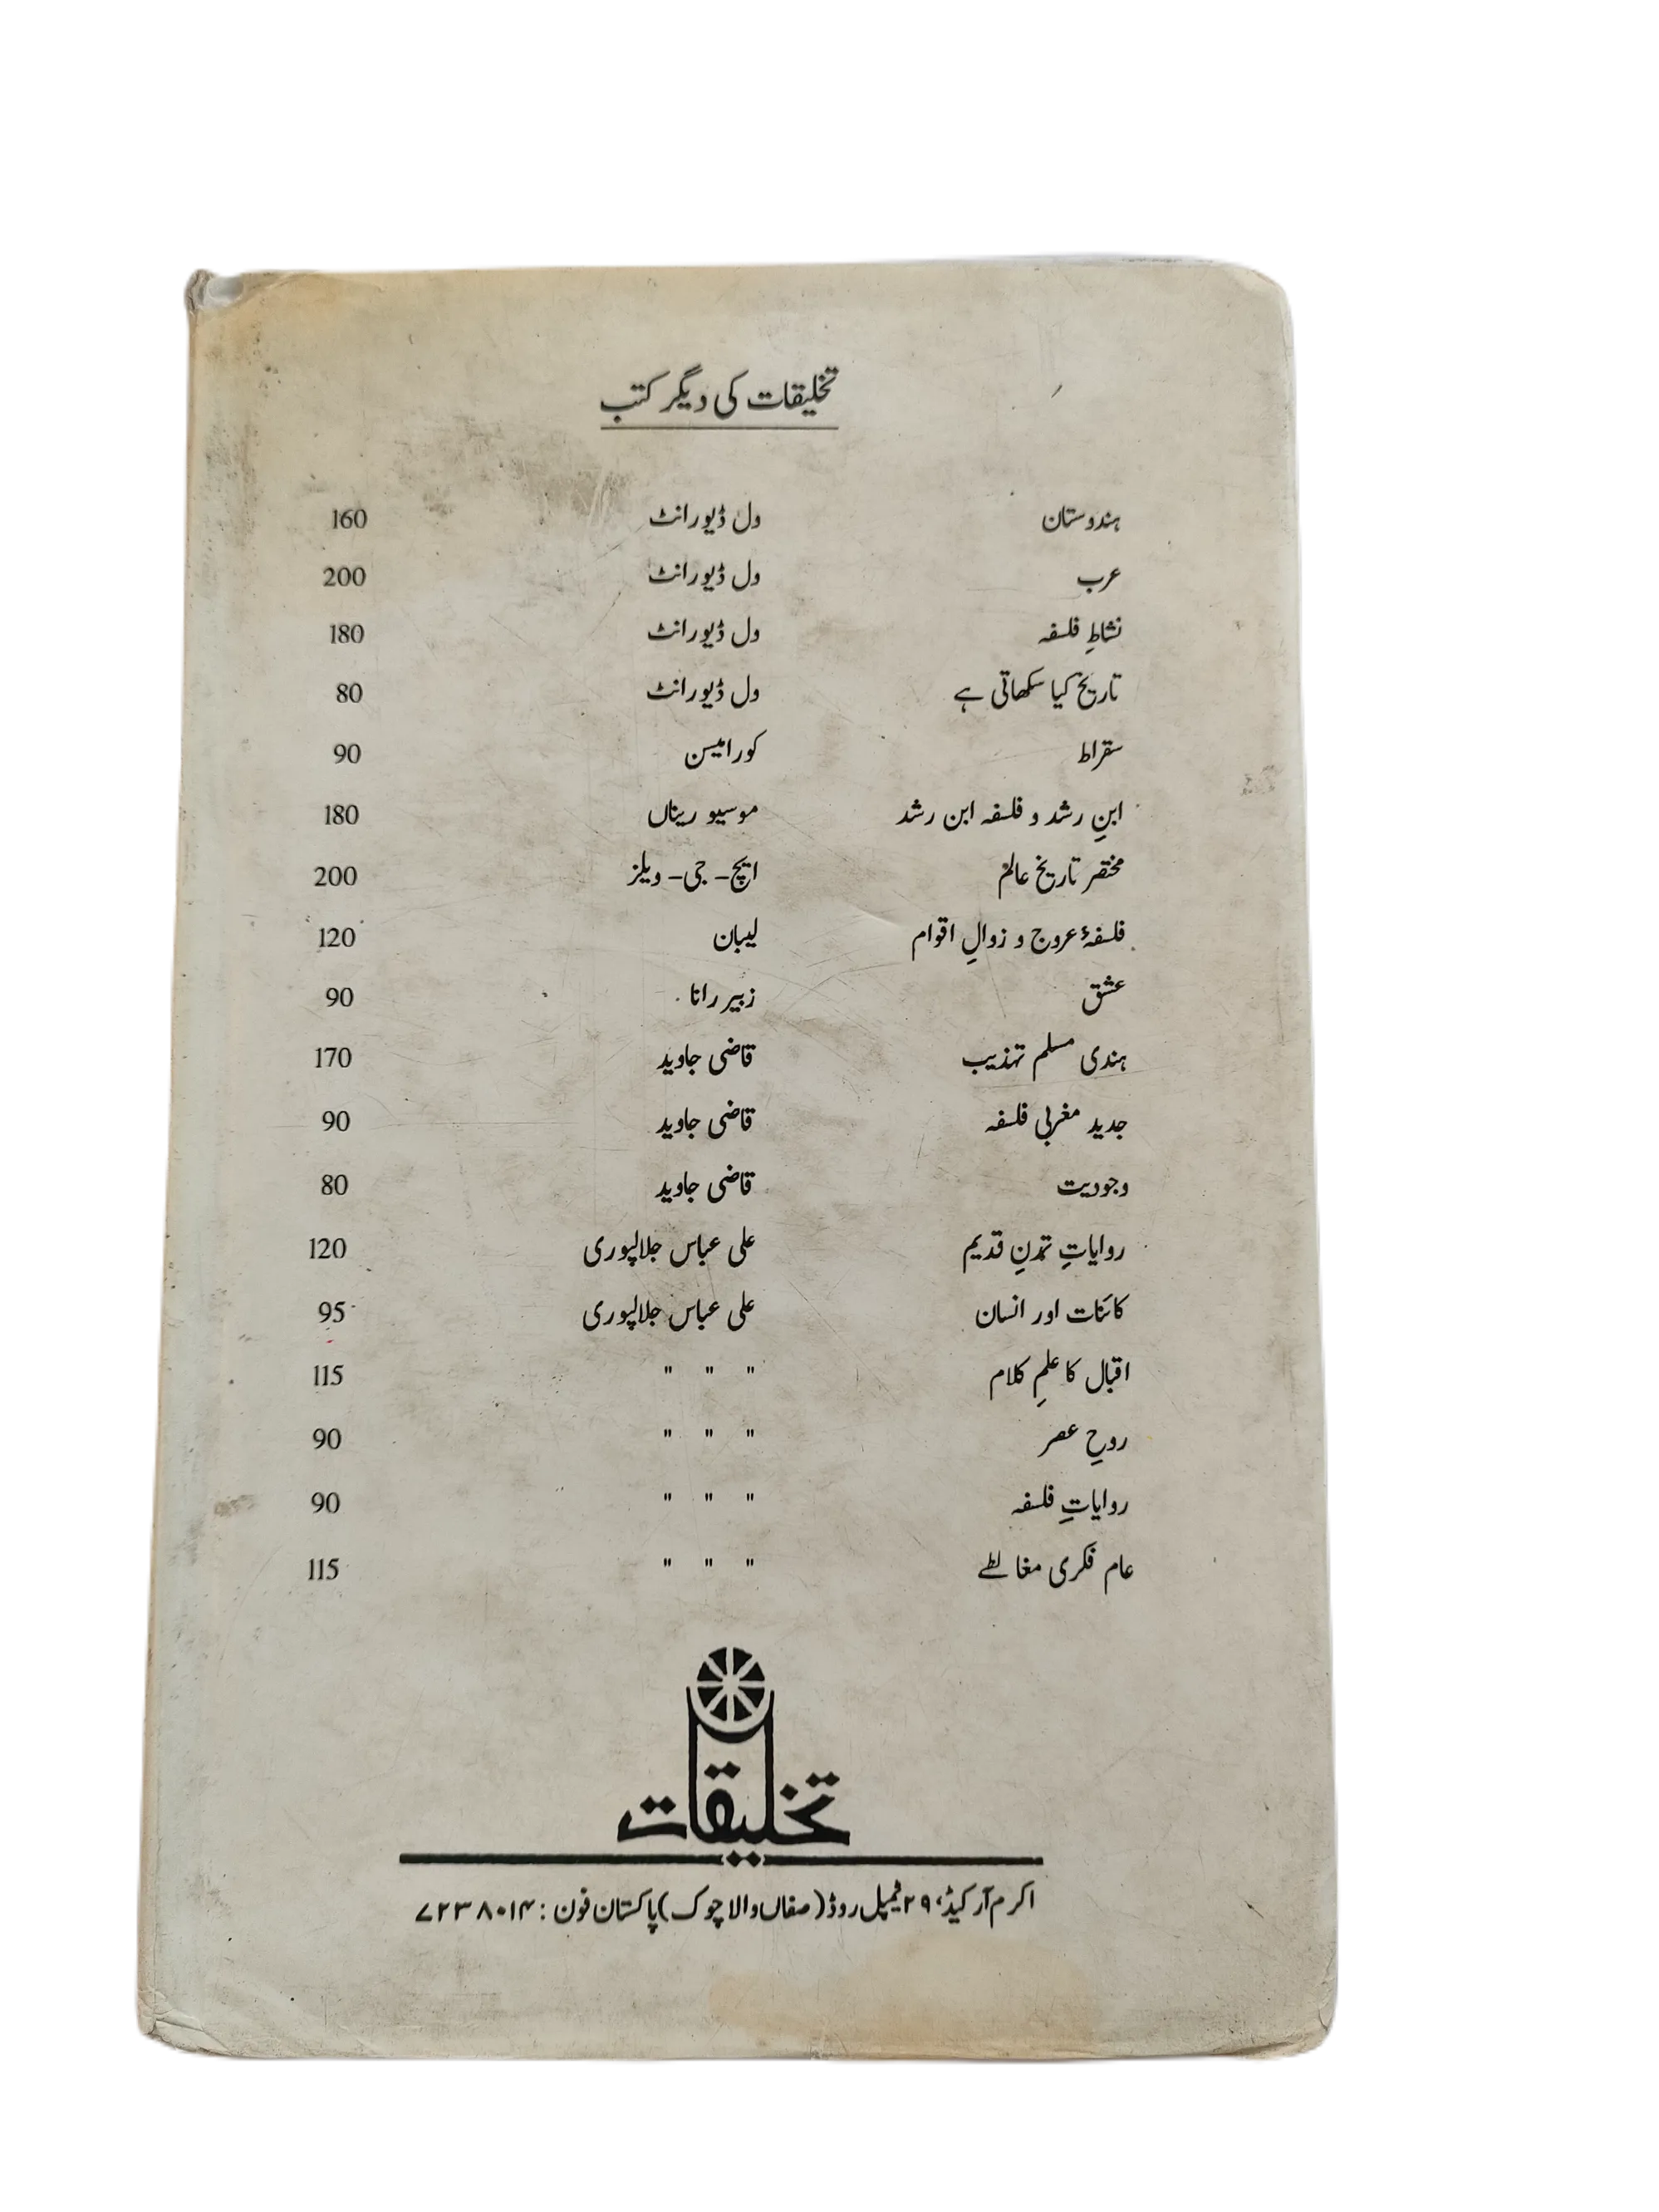 تخلیقات کی دیگر کتب
ہندوستان ول ڈیورانٹ 160
عرب ول ڈیورانٹ 200
نشاطِ فلسفہ ول ڈیورانٹ 180
تاریخ کیا سکھاتی ہے ول ڈیورانٹ 80
سقراط کورامیسن 90
ابنِ رشد و فلسفہ ابن رشد موسیو ریناں 180
مختصر تاریخ عالم ایچ۔ جی۔ ویلز 200
فلسفۂ عروج و زوالِ اقوام لیبان 120
عشق زبیر رانا 90
ہندی مسلم تہذیب قاضی جاوید 170
جدید مغربی فلسفہ قاضی جاوید 90
وجودیت قاضی جاوید 80
روایاتِ تمدنِ قدیم علی عباس جلالپوری 120
کائنات اور انسان علی عباس جلالپوری 95
اقبال کا علمِ کلام " " " 115
روحِ عصر " " " 90
روایاتِ فلسفہ " " " 90
عام فکری مغالطے " " " 115
تخلیقات
اکرم آرکیڈ، ۲۹ ٹیمپل روڈ (صفاں والا چوک) پاکستان فون : ۷۲۳۸۰۱۴